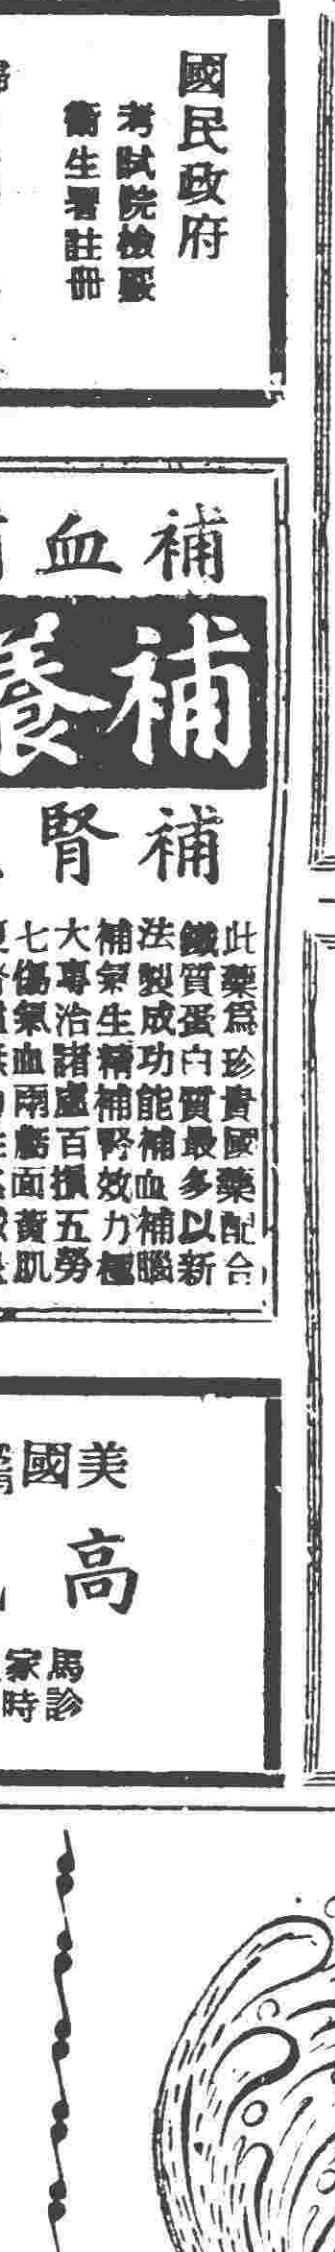 國民政府
考試院檢覈
衞生署註冊
補血
補養
補腎
此藥爲珍貴國藥配合
鐵質蛋白質最多以新
法製成功能補血補腦
補氣生精補腎效力極
大專治諸虛百損五勞
七傷氣血兩虧面黃肌
美國
高
馬診
家時